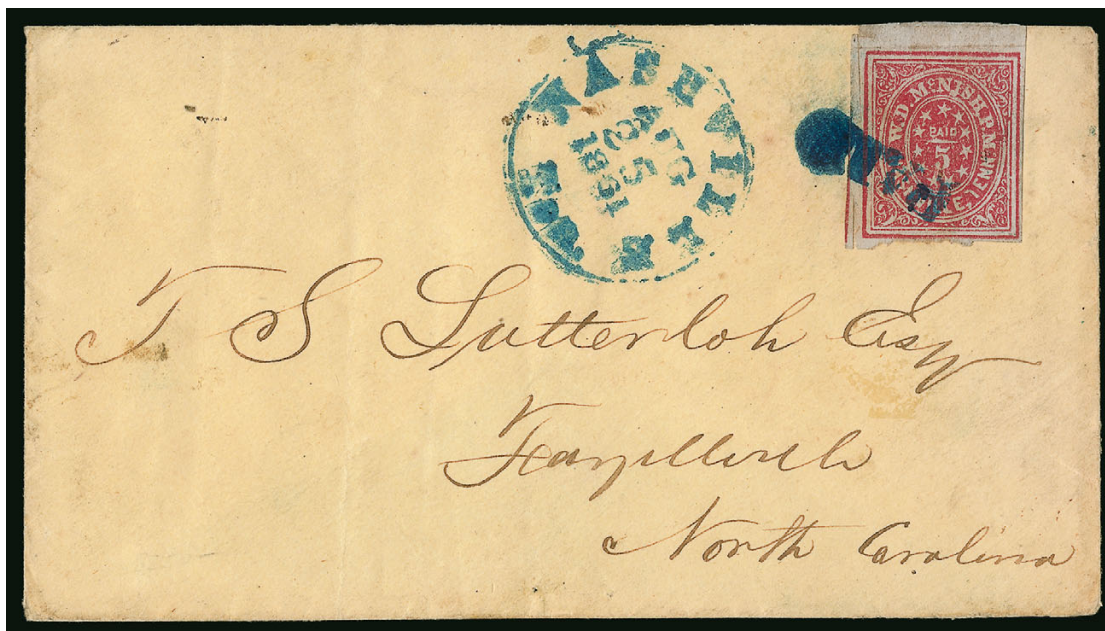 NASHVILLE TEN.
AUG
25
1861
W.D. McNISH P.M.
NASHVILLE, TENN
PAID
5
PAID
T S Lutterloh Esq
Fayetteville
North Carolina